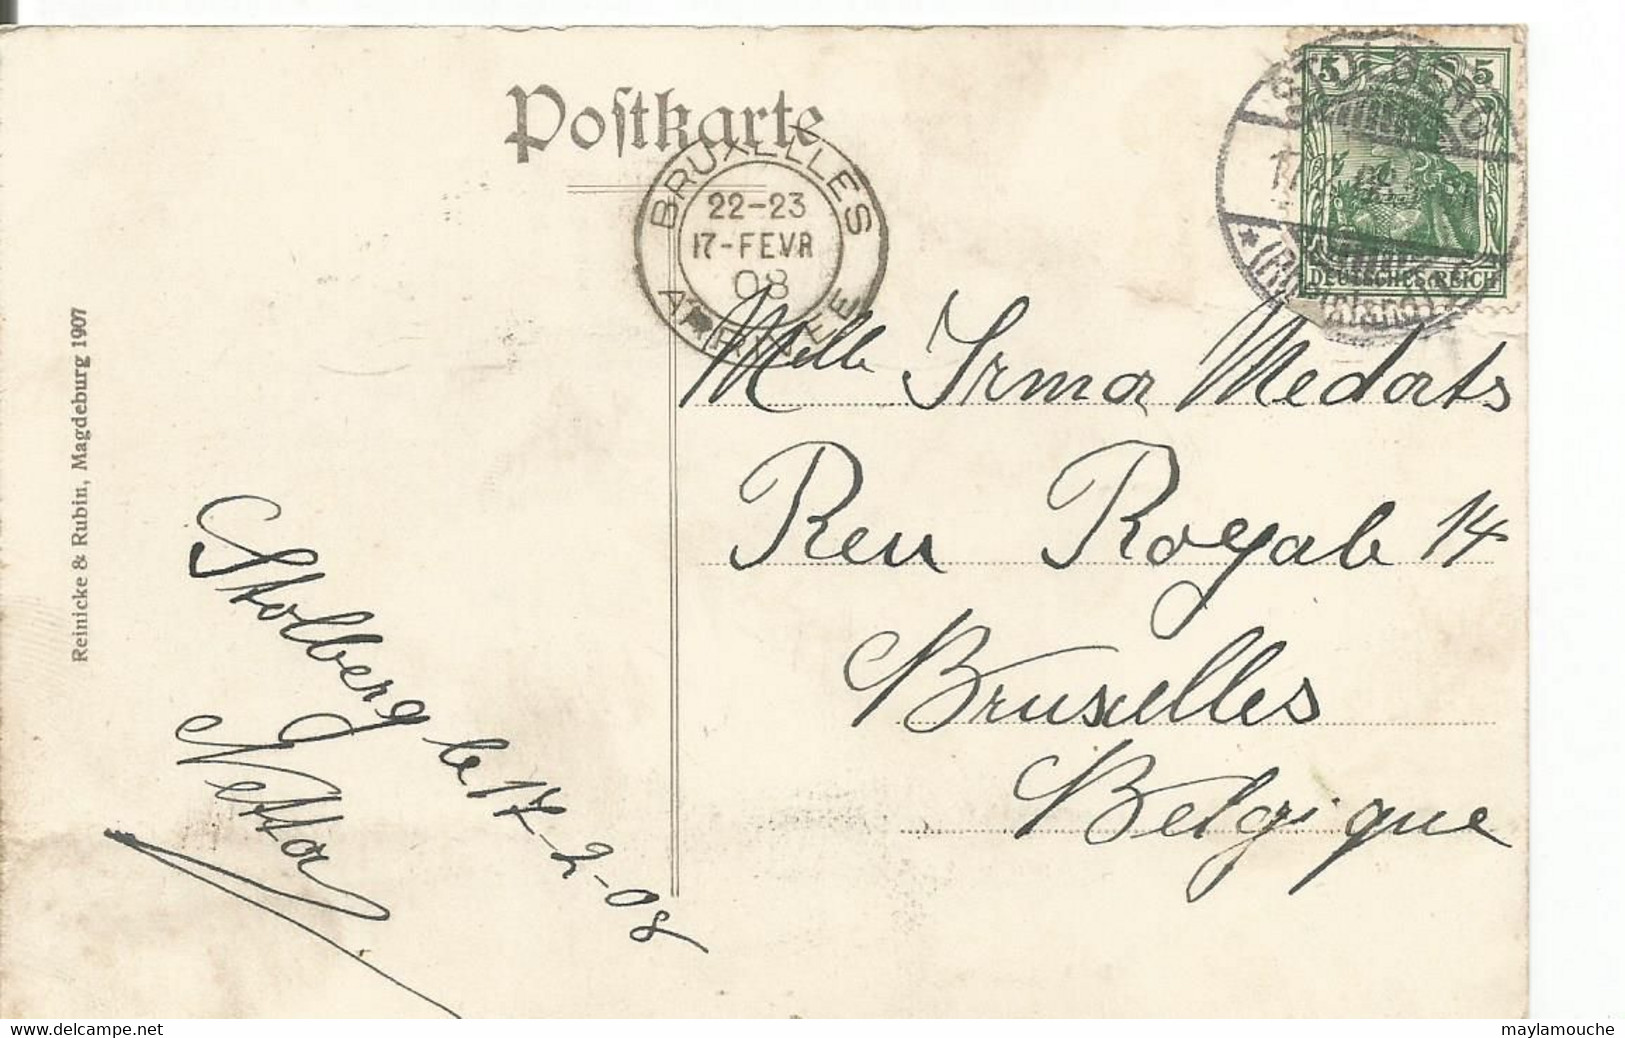 Postkarte
BRUXELLES
22-23
17-FEVR
08
ARRIVEE
STOLBERG
(Rheinland)
5 5
DEUTSCHES REICH
Reinicke & Rubin, Magdeburg 1907
Melle Irma Medats
Reu Royale 14
Bruxelles
Belgique
Stolberg le 17-2-08
Netta
www.delcampe.net
maylamouche